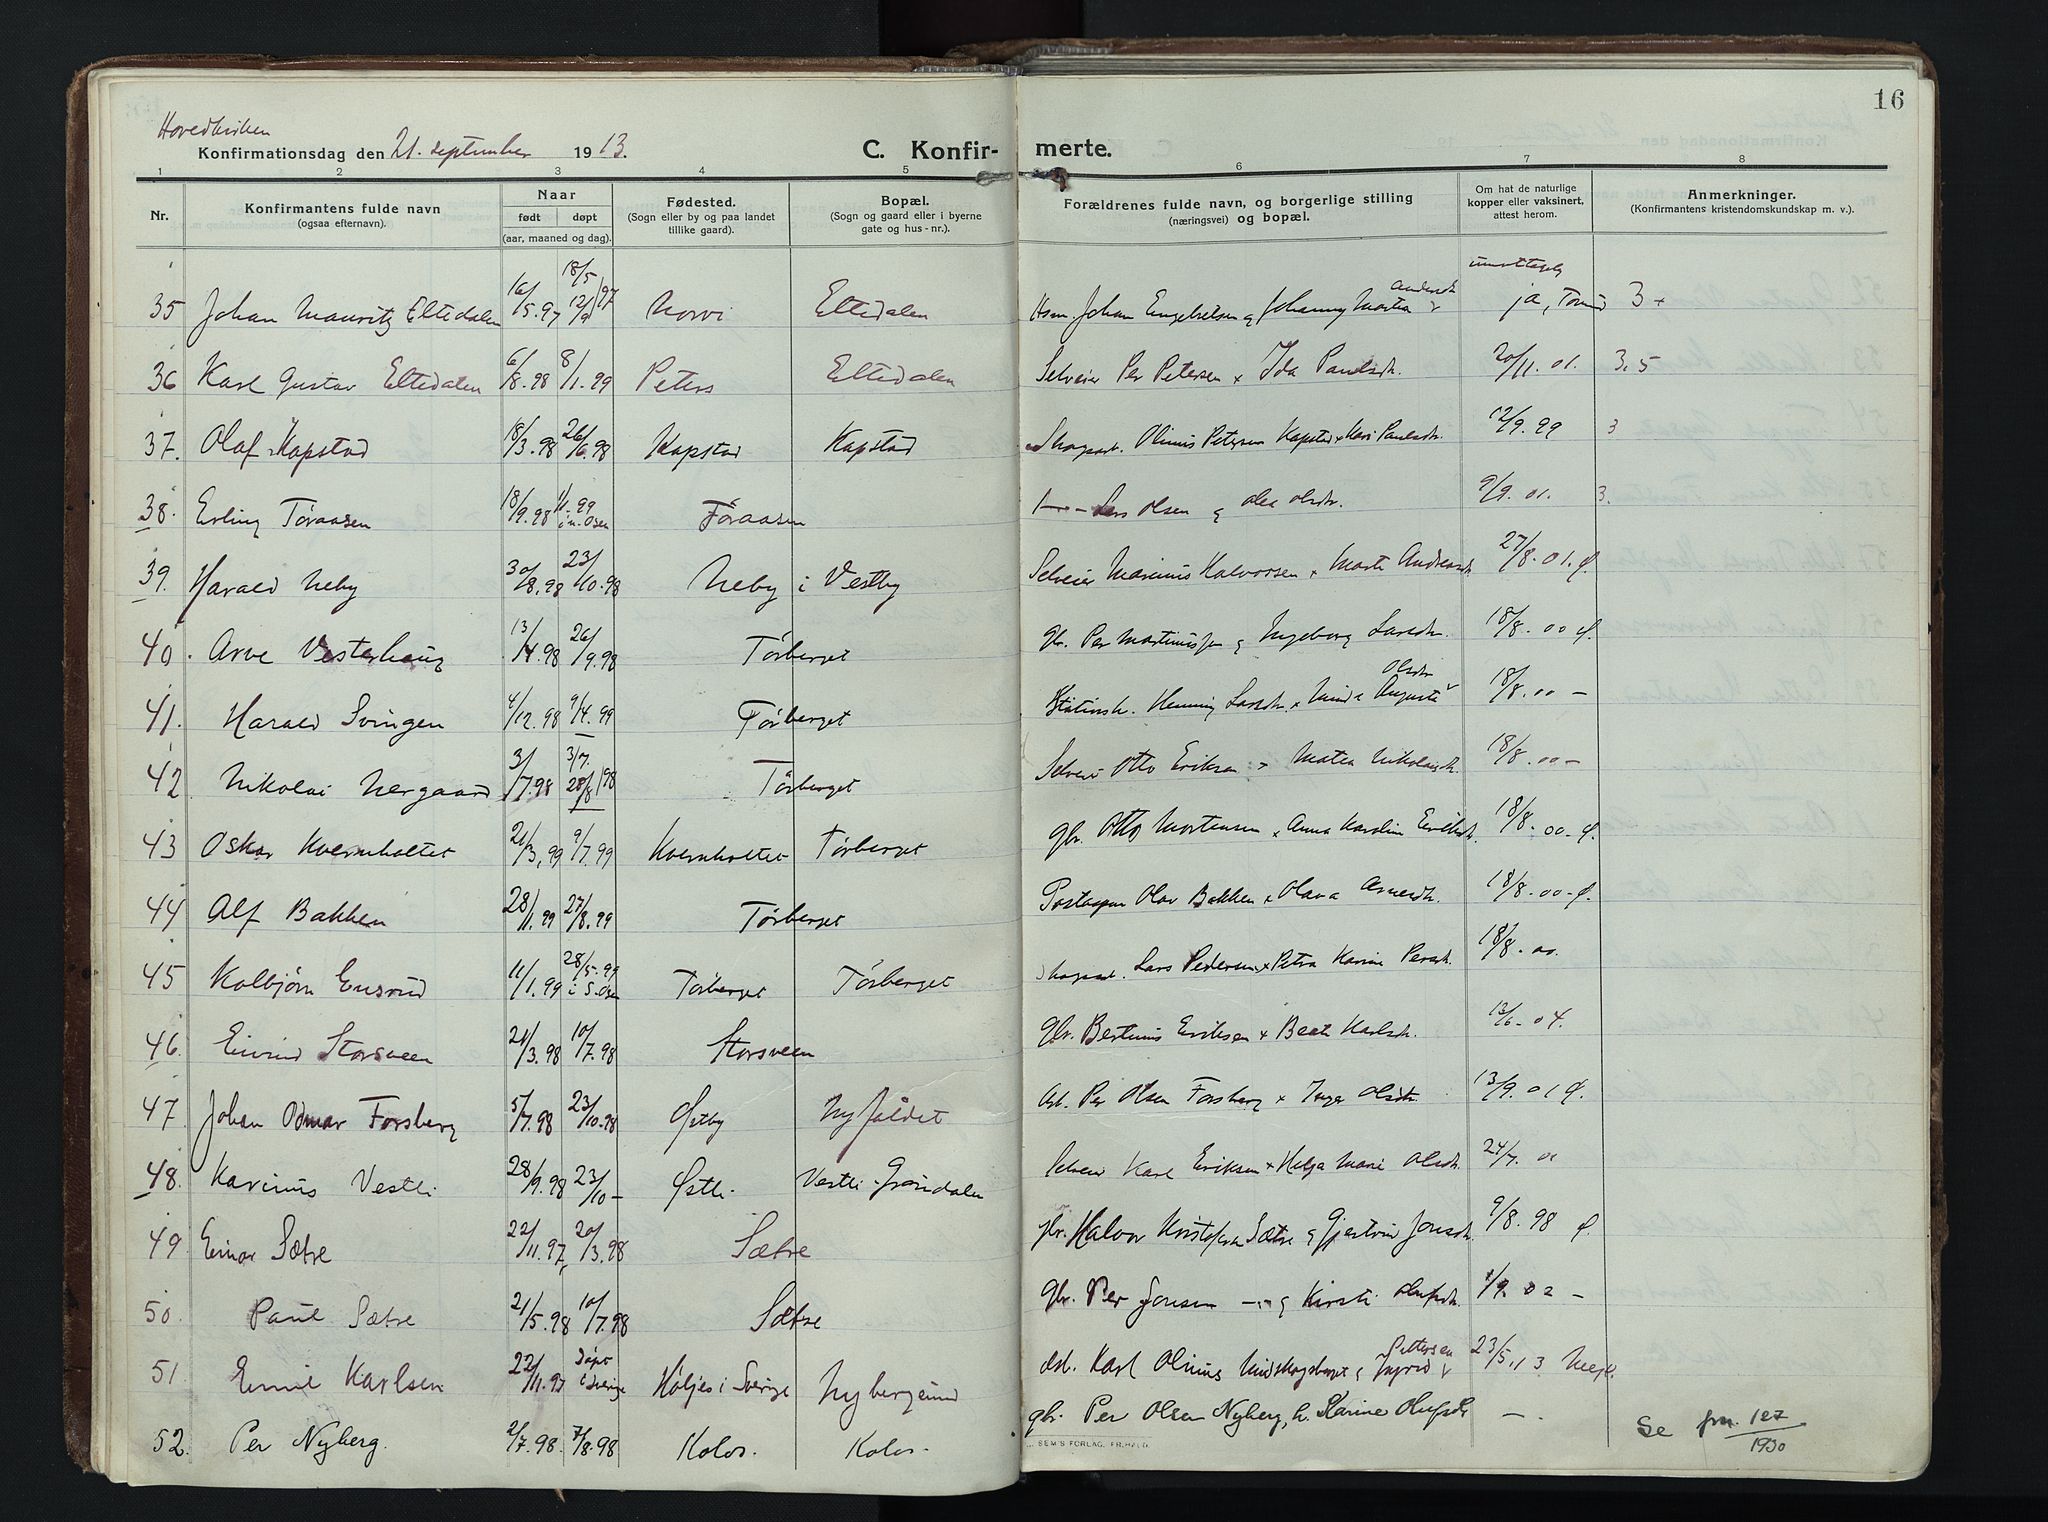 16
Hovedkirken
Konfirmationsdag den 21. september 1913.
C. Konfir- merte.
1 2 3 4 5 6 7 8
Nr. Konfirmantens fulde navn (ogsaa efternavn). Naar født døpt (aar, maaned og dag). Fødested. (Sogn eller by og paa landet tillike gaard). Bopæl. (Sogn og gaard eller i byerne gate og hus-nr.). Forældrenes fulde navn, og borgerlige stilling (næringsvei) og bopæl. Om hat de naturlige kopper eller vaksinert, attest herom. Anmerkninger. (Konfirmantens kristendomskundskap m. v.).
35 Johan Mauritz Eltedalen 16/5.97 18/5 12/9 97 Eltedalen Hsm. Johan Engebretsen & Johanna Martea ja, 3+
36 Karl Gustav Eltedalen 6/8.98 8/1.99 Peters Eltedalen Selveier Per Petersen & Ida Paulsdr. 20/11.01. 3,5
37. Olaf Kapstad 18/3.98 26/6.98 Kapstad Kapstad Skogsarb. Olinus Petersen Kapstad & Kari Paulsdr. 12/9.99 3
38. Erling Tøraasen 18/9.98 1/1.99 i n. Osen Tøraasen Lars Olsen & Olea Olsdr. 9/9.01. 3.
39. Harald Neby 30/8.98 23/10.98 Neby i Vestby Selveier Marinus Halvorsen & Marte Andreasdr. 27/8.01. Ø.
40. Arve Vesterhaug 13/4.98 26/9.98 Tørberget gbr. Per Martinussen & Ingeborg Larsdr. 18/8.00 Ø.
41. Harald Svingen 4/12.98 9/4.99 Tørberget Henning & Augusta Olsdr. 18/8.00 –
42 Nikolai Nergaard 3/7.98 3/7. 28/8 98 Tørberget Selveier Otto Eriksen & Matea Nikolaisdr. 18/8.00 –
43 Oskar Kvernholtet 21/3.99 9/7.99 Kvernholtet Tørberget gbr. Otto Mortensen & Anna Karoline Eriksdr. 18/8.00 – Ø.
44 Alf Bakken 28/1.99 27/8.99 Tørberget Olav Bakken & Olava Arnesdr. 18/8.00 – Ø.
45 Kolbjørn Ensrud 11/1.99 28/5.99 i S. Osen Tørberget Tørberget Skogsarb. Lars Pedersen & Petra Karine Persdr. 18/8.00.
46. Eivind Storsveen 21/3.98 10/7.98 Storsveen gbr. Bertinus Eriksen & Beate Karlsdr. 13/6.04.
47. Johan Odmar Forsberg 5/7.98 23/10.98 Østby Nyfaldet arb. Per Olsen Forsberg & Inger Olsdtr. 13/9.01 Ø.
48. Karinus Vestli 28/9.98 23/10 – Østli. Vestli Grøndalen Selveier Karl Eriksen & Helga Marie Olsdr. 24/7.01
49 Einar Sætre 22/11.97 20/3.98 Sætre gbr. Halvor Kristofersen Sætre & Gjertrud Jonsdr. 9/8.98 Ø.
50. Paul Sætre 21/5.98 10/7.98 Sætre gbr. Per Jonsen – & Kirsti Olufsdr. 1/9.02 –
51. Emil Karlsen 22/11.97 Døpt i Sverige Høljes i Sverige Nybergsund arb. Karl Olinus & Pettersen 23/5.13
52. Per Nyberg. 2/7.98. 7/8.98 Kolos. Kolos. gbr. Per Olsen Nyberg, h. Karine Olufsdr –. Se frn. 127/1930
SEM'S FORLAG, FR.HALD.